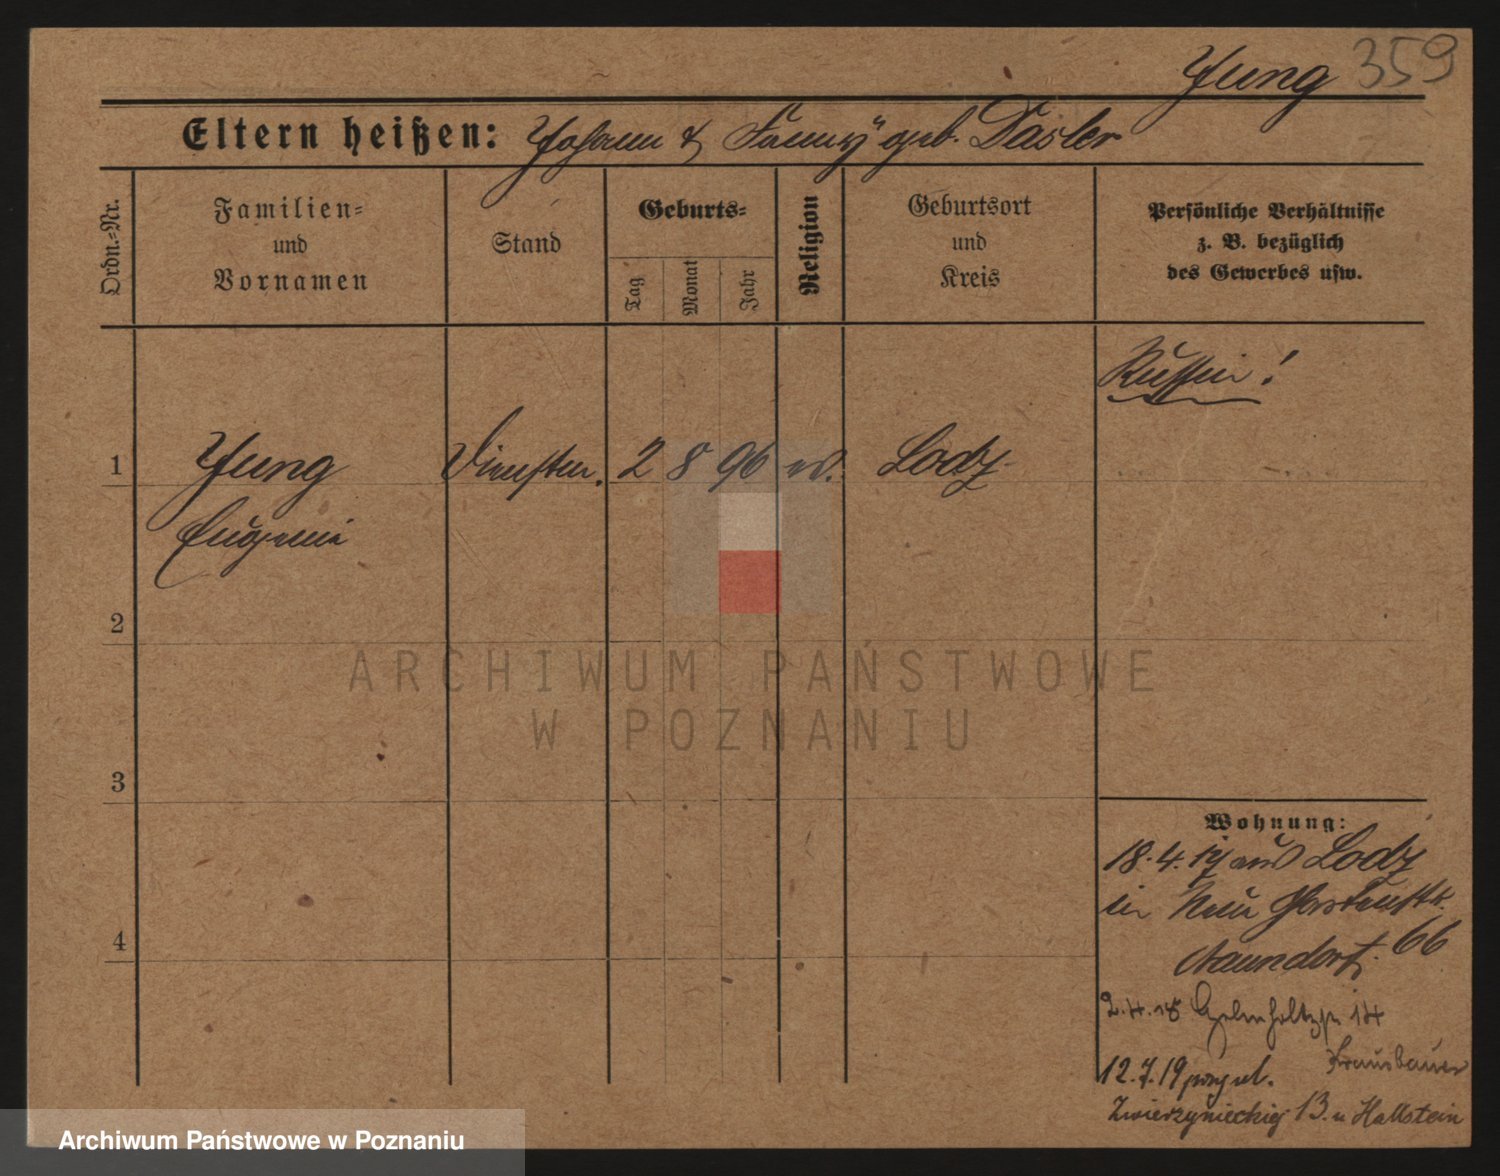 Yung 359
Eltern heißen: Johann & Fanny geb. Dasler
Ordn.=Nr.
Familien=
und
Vornamen
Stand
Geburts=
Tag
Monat
Jahr
Religion
Geburtsort
und
Kreis
Persönliche Verhältnisse
z. B. bezüglich
des Gewerbes usw.
Russin!
1 Yung Dienstm. 2 8 96 ev. Lodz
Eugenie
2
3
4
Wohnung:
18.4.17 aus Lodz
in Neu
Naundorf. 66
2.4.18 14
Krausbauer
12.7.19
Zwierzynieckiej 13 Hallstein
ARCHIWUM PAŃSTWOWE
W POZNANIU
Archiwum Państwowe w Poznaniu